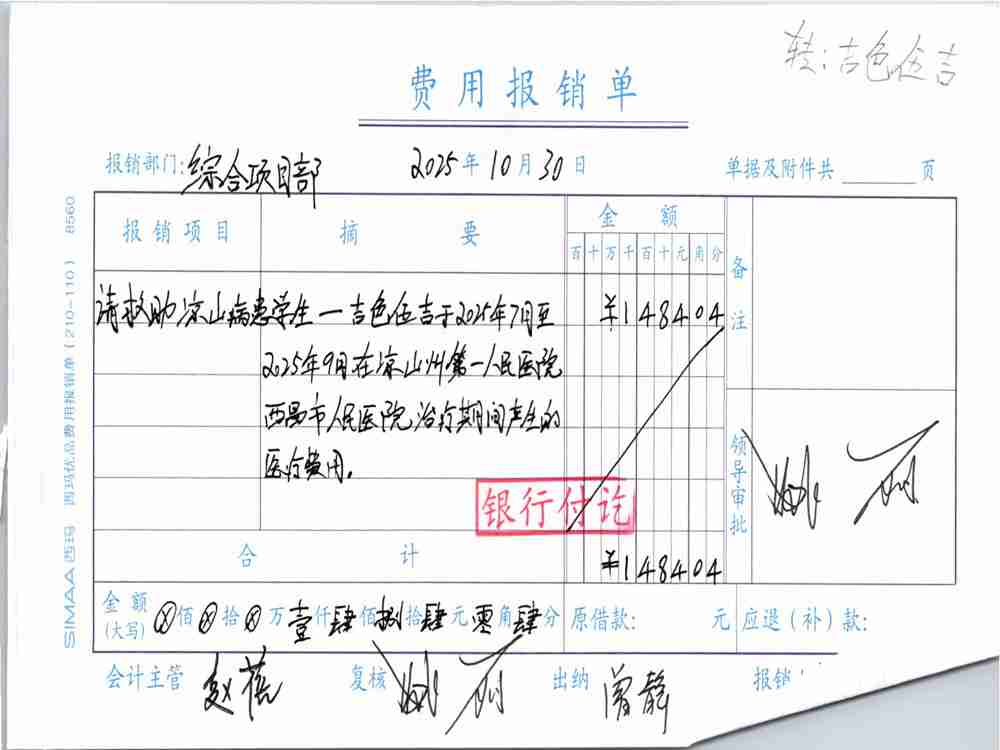 转:吉色伍吉
费用报销单
报销部门:综合项目部 2025年10月30日 单据及附件共 页
报销项目 摘要 金额 备注
百十万千百十元角分
请救助凉山病患学生一吉色伍吉于2025年7月至 ¥148404
2025年9月在凉山州第一人民医院
西昌市人民医院治疗期间产生的
医疗费用。
银行付讫
领导审批
合计 ¥148404
金额(大写) ⊗佰⊗拾⊗万壹仟肆佰捌拾肆元零角肆分 原借款: 元 应退(补)款:
会计主管 赵 复核 出纳 曾静 报销
SIMAA西玛 西玛优品费用报销单(210-110) 8560